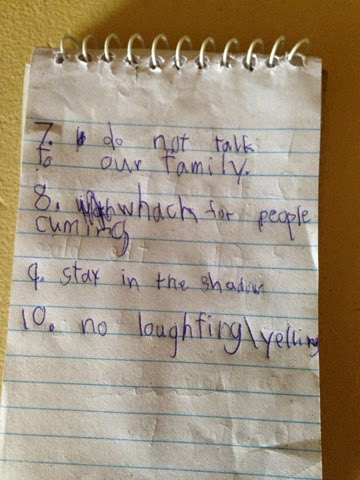 7. do not talk
to our family.
8. whach for people
cuming
9. stay in the shadow
10. no loughfing\yelling